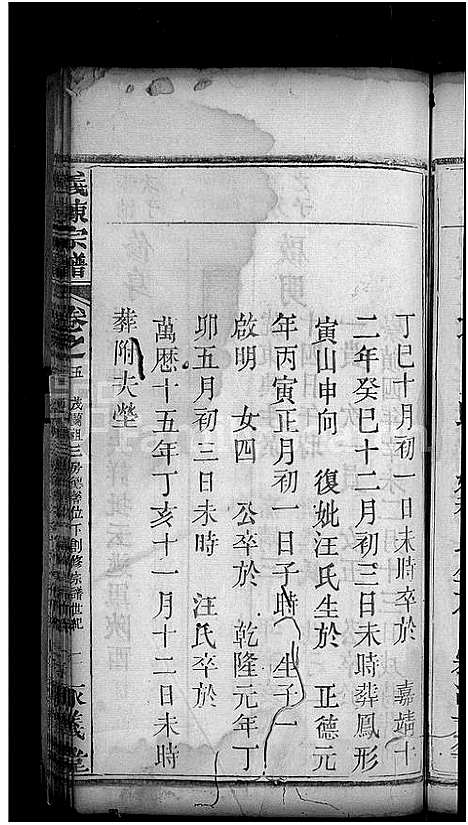 丁巳十月初一日未時卒於　嘉靖十
二年癸巳十二月初三日未時葬鳳形
寅山申向　復妣汪氏生於　正德元
年丙寅正月初一日子時　生子一
啟明　女四　公卒於　乾隆元年丁
卯五月初三日未時　汪氏卒於
萬曆十五年丁亥十一月十二日未時
葬附夫塋
義陳宗譜
卷之五　茂蘭祖三房德馨位下創修宗譜世紀
義堂